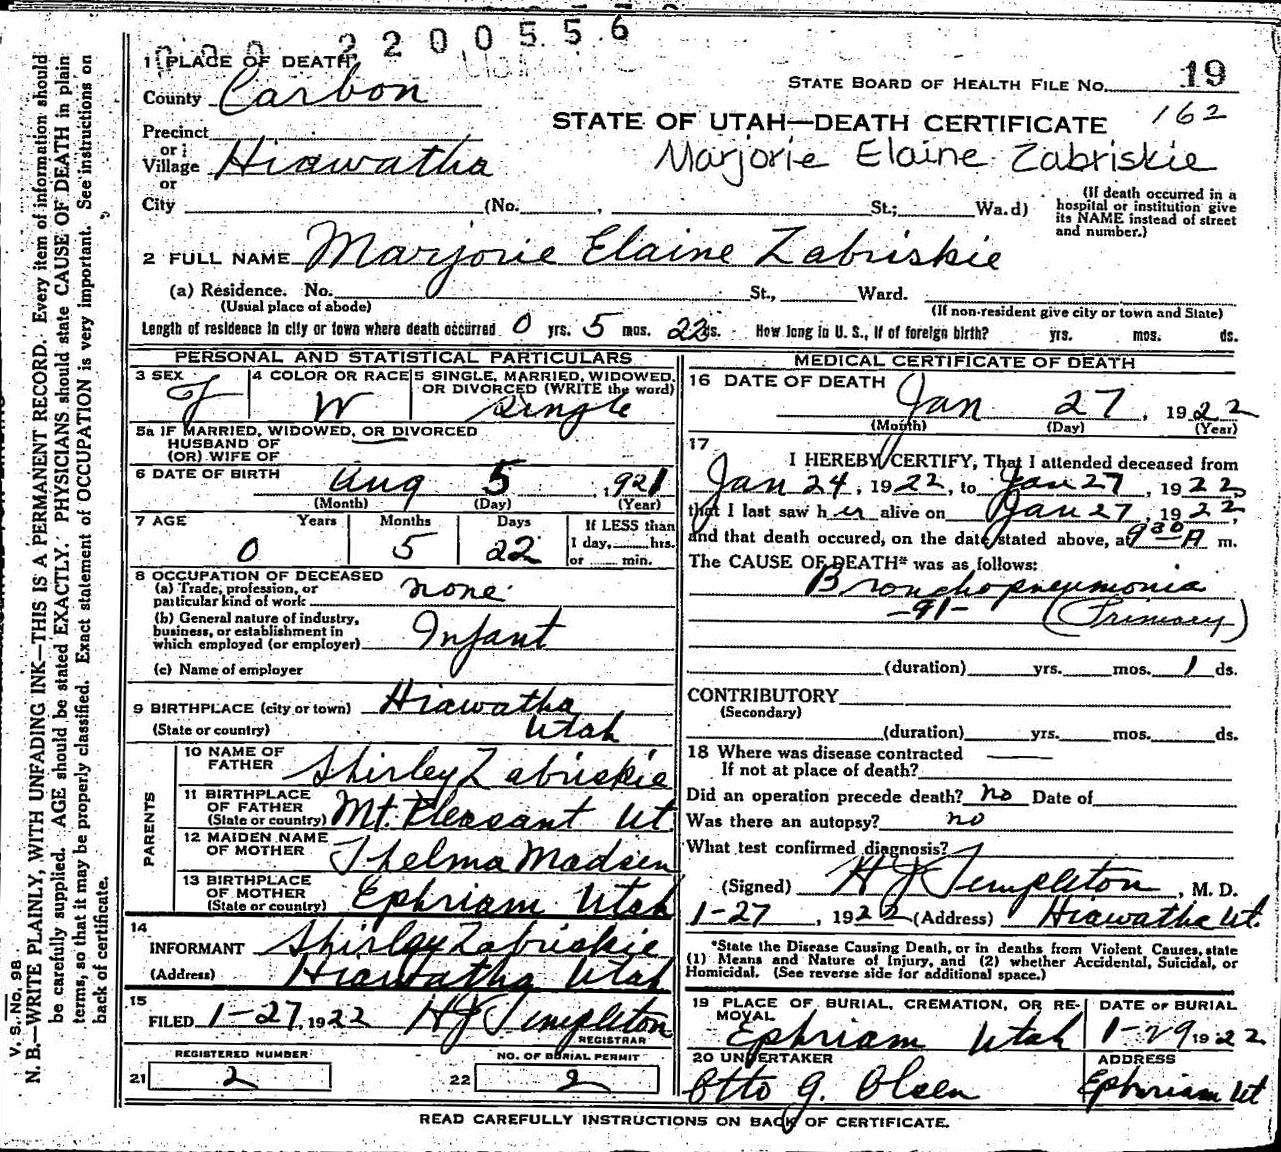 2200556
1 PLACE OF DEATH
STATE BOARD OF HEALTH FILE NO. 19
County Carbon
162
STATE OF UTAH—DEATH CERTIFICATE
Precinct
or
Village Hiawatha
Marjorie Elaine Zabriskie
or
City (No. , St.; Wa.d)
(If death occurred in a
hospital or institution give
its NAME instead of street
and number.)
2 FULL NAME Marjorie Elaine Zabriskie
(a) Residence. No. St., Ward.
(Usual place of abode) (If non-resident give city or town and State)
Length of residence in city or town where death occurred 0 yrs. 5 mos. 22 ds. How long in U. S., if of foreign birth? yrs. mos. ds.
PERSONAL AND STATISTICAL PARTICULARS
3 SEX F
4 COLOR OR RACE W
5 SINGLE, MARRIED, WIDOWED,
OR DIVORCED (WRITE the word)
single
5a IF MARRIED, WIDOWED, OR DIVORCED
HUSBAND OF
(OR) WIFE OF
6 DATE OF BIRTH Aug 5, 1921
(Month) (Day) (Year)
7 AGE Years Months Days If LESS than
0 5 22 1 day, hrs.
or min.
8 OCCUPATION OF DECEASED
(a) Trade, profession, or
particular kind of work none
(b) General nature of industry,
business, or establishment in
which employed (or employer) Infant
(c) Name of employer
9 BIRTHPLACE (city or town) Hiawatha
(State or country) Utah
PARENTS
10 NAME OF
FATHER Shirley Zabriskie
11 BIRTHPLACE
OF FATHER
(State or country) Mt. Pleasant Ut.
12 MAIDEN NAME
OF MOTHER Thelma Madsen
13 BIRTHPLACE
OF MOTHER
(State or country) Ephriam Utah
14
INFORMANT Shirley Zabriskie
(Address) Hiawatha Utah
15
FILED 1-27, 1922 H J Templeton
REGISTRAR
REGISTERED NUMBER NO. OF BURIAL PERMIT
21 2 22 2
MEDICAL CERTIFICATE OF DEATH
16 DATE OF DEATH
Jan 27, 1922
(Month) (Day) (Year)
17
I HEREBY CERTIFY, That I attended deceased from
Jan 24, 1922, to Jan 27, 1922,
that I last saw h er alive on Jan 27, 1922,
and that death occured, on the date stated above, at 930 A m.
The CAUSE OF DEATH* was as follows:
Bronchopneumonia
-91- (Primary)
(duration) yrs. mos. 1 ds.
CONTRIBUTORY
(Secondary)
(duration) yrs. mos. ds.
18 Where was disease contracted
If not at place of death?
Did an operation precede death? no Date of
Was there an autopsy? no
What test confirmed diagnosis?
(Signed) H J Templeton, M. D.
1-27, 1922 (Address) Hiawatha Ut.
*State the Disease Causing Death, or in deaths from Violent Causes, state
(1) Means and Nature of Injury, and (2) whether Accidental, Suicidal, or
Homicidal. (See reverse side for additional space.)
19 PLACE OF BURIAL, CREMATION, OR RE-
MOVAL
Ephriam Utah
DATE OF BURIAL
1-29 1922
20 UNDERTAKER
Otto G. Olsen
ADDRESS
Ephriam Ut
READ CAREFULLY INSTRUCTIONS ON BACK OF CERTIFICATE.
V. S. No. 98
N. B.—WRITE PLAINLY, WITH UNFADING INK—THIS IS A PERMANENT RECORD. Every item of information should
be carefully supplied. AGE should be stated EXACTLY. PHYSICIANS should state CAUSE OF DEATH in plain
terms, so that it may be properly classified. Exact statement of OCCUPATION is very important. See instructions on
back of certificate.